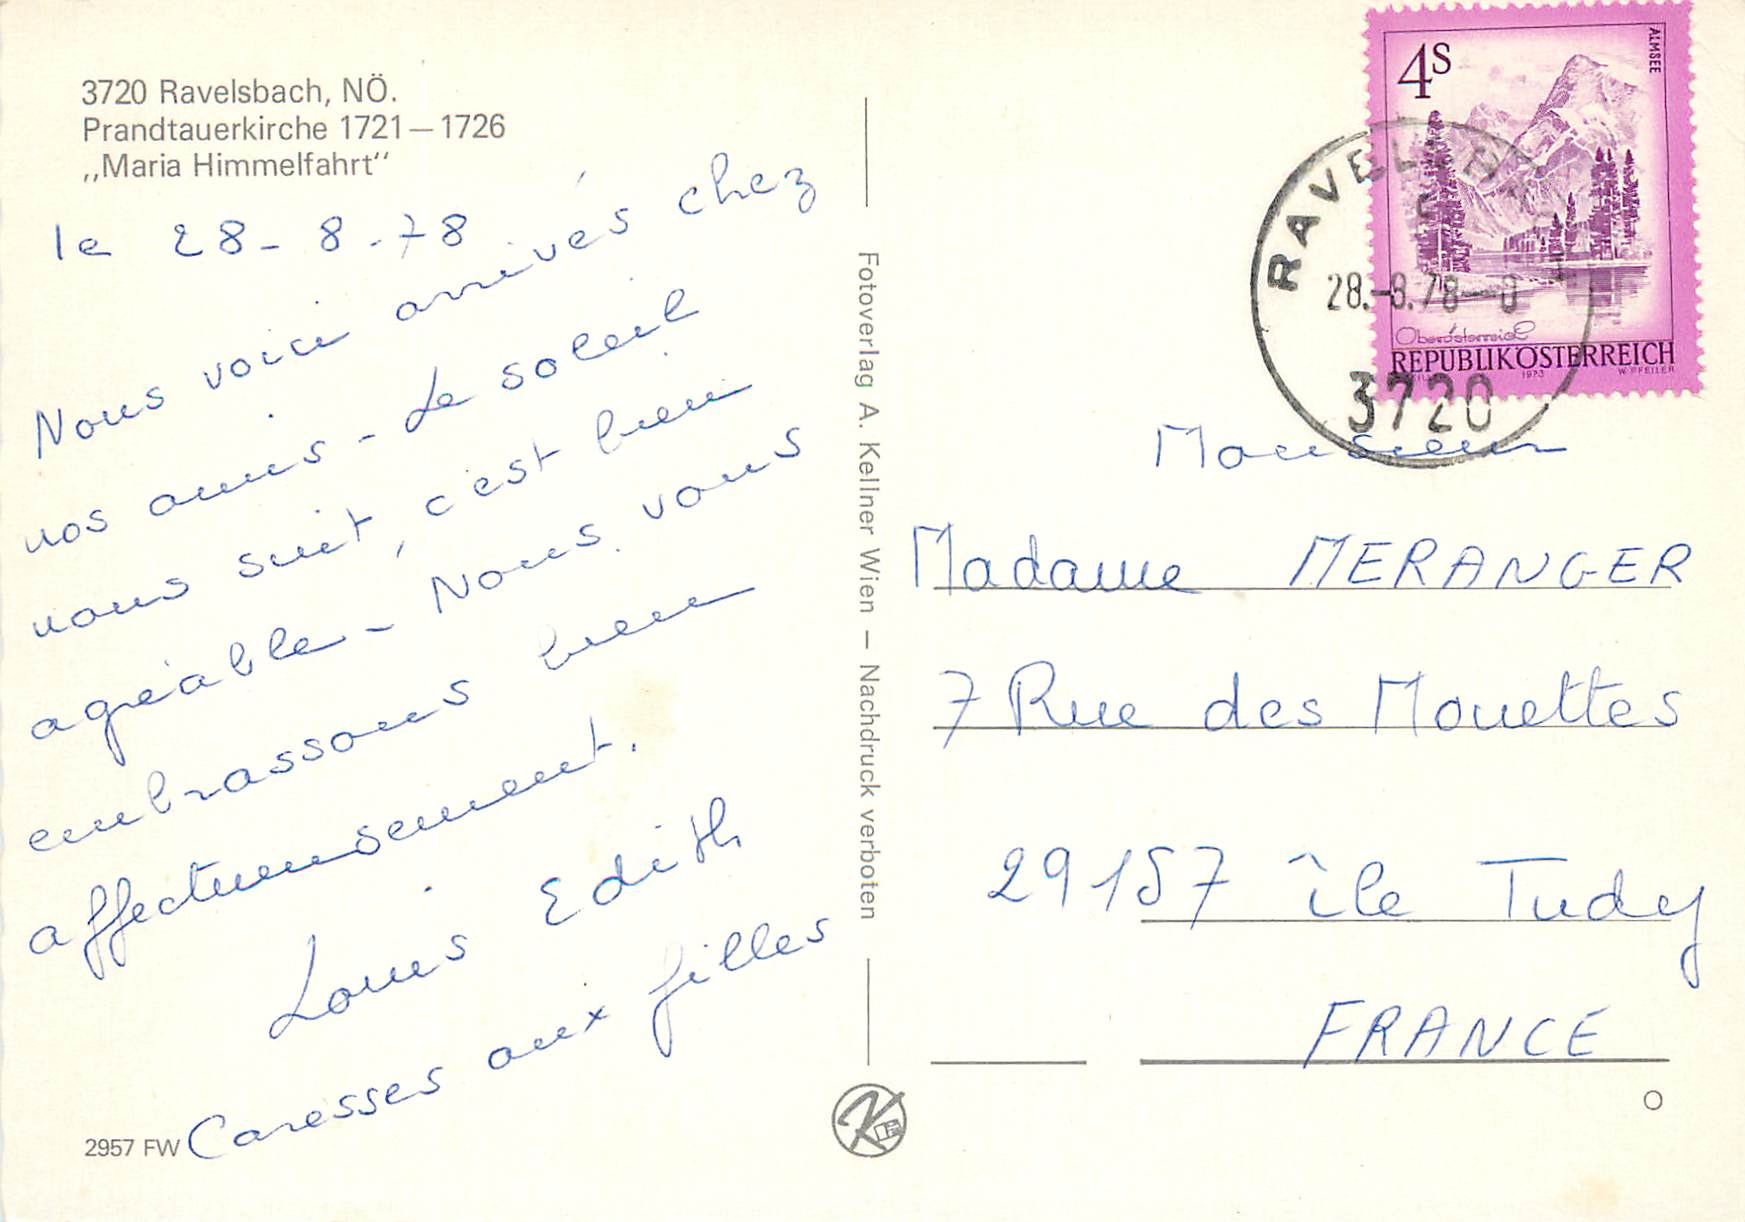 3720 Ravelsbach, NÖ.
Prandtauerkirche 1721 – 1726
„Maria Himmelfahrt"
le 28 - 8 - 78
Nous voici arrivés chez
nos amis - Le soleil
nous suit, c'est bien
agréable - Nous vous
embrassons bien
affectueusement.
Louis Edith
Caresses aux filles
2957 FW
Fotoverlag A. Kellner Wien – Nachdruck verboten
4S
ALMSEE
Oberösterreich
REPUBLIK ÖSTERREICH
1973
W. PFEILER
28.-8.78
3720
Monsieur
Madame MERANGER
7 Rue des Mouettes
29157 île Tudy
FRANCE